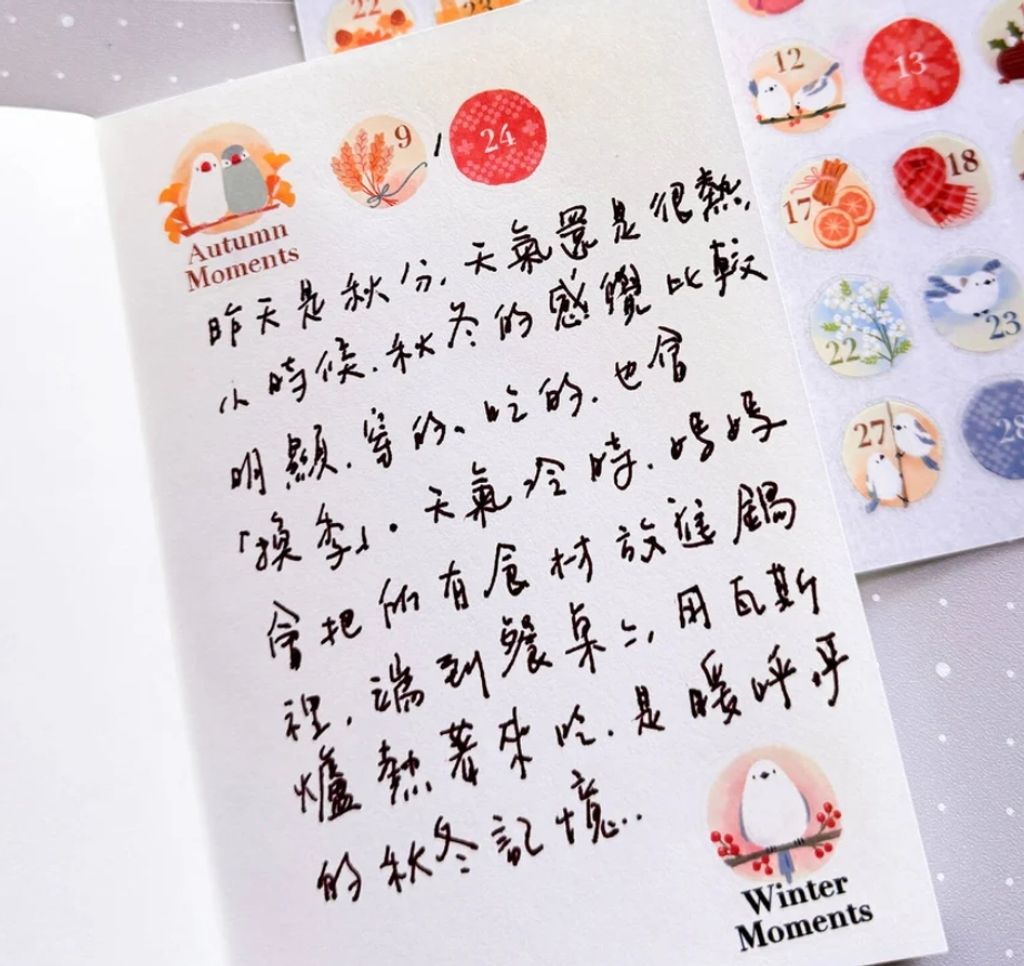 22
23
Autumn
Moments
9 / 24
昨天是秋分,天氣還是很熱,
小時候,秋冬的感覺比較
明顯,穿的、吃的,也會
「換季」。天氣冷時,媽媽
會把所有食材放進鍋
裡,端到餐桌上,用瓦斯
爐熱著來吃,是暖呼呼
的秋冬記憶..
Winter
Moments
12
13
17
18
22
23
27
28